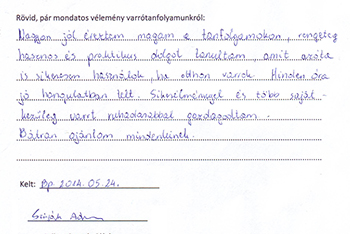 Rövid, pár mondatos vélemény varrótanfolyamunkról:
Nagyon jól éreztem magam a tanfolyamokon, rengeteg
hasznos és praktikus dolgot tanultam amit azóta
is sikeresen használok, ha otthon varrok. Minden óra
jó hangulatban telt. Sikerélménnyel és több saját-
kezűleg varrt ruhadarabbal gazdagodtam.
Bátran ajánlom mindenkinek.
Kelt: Bp 2014.05.24.